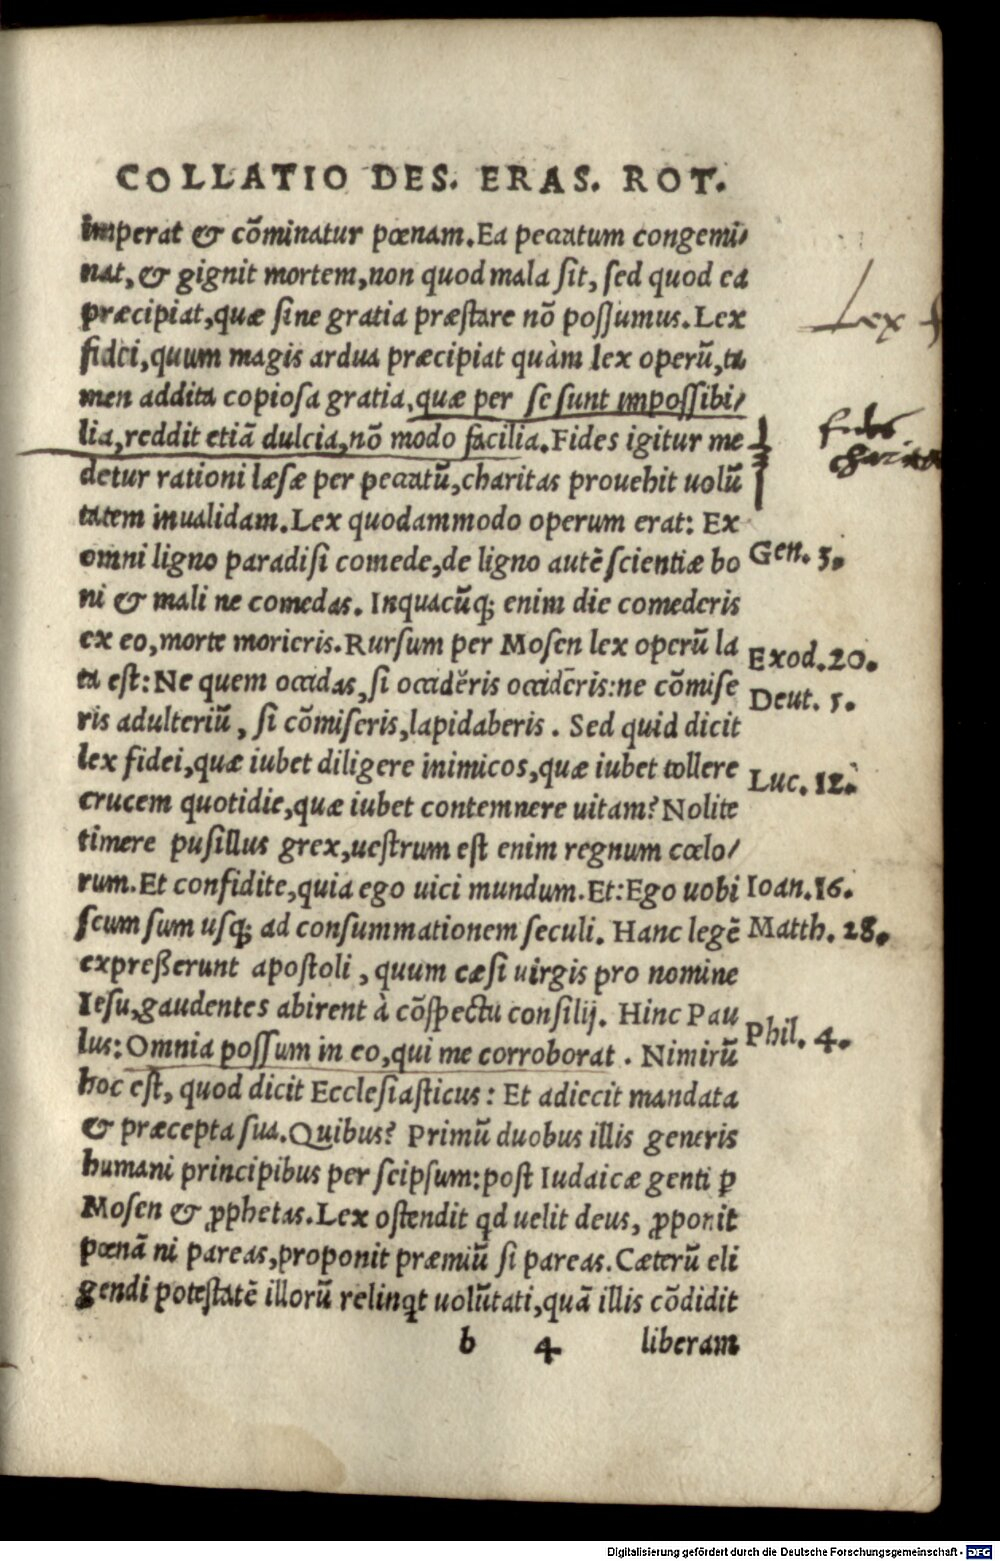 COLLATIO DES. ERAS. ROT.
imperat & cōminatur pœnam. Ea peccatum congemi/
nat, & gignit mortem, non quod mala sit, sed quod ea
præcipiat, quæ sine gratia præstare nō possumus. Lex
fidei, quum magis ardua præcipiat quàm lex operū, ta
men addita copiosa gratia, quæ per se sunt impossibi/
lia, reddit etiā dulcia, nō modo facilia. Fides igitur me
detur rationi læsæ per peccatū, charitas prouehit uolū
tatem inualidam. Lex quodammodo operum erat: Ex
omni ligno paradisi comede, de ligno autē scientiæ bo
ni & mali ne comedas. Inquacūq; enim die comederis
ex eo, morte morieris. Rursum per Mosen lex operū la
ta est: Ne quem occidas, si occidēris occidēris: ne cōmise
ris adulteriū, si cōmiseris, lapidaberis. Sed quid dicit
lex fidei, quæ iubet diligere inimicos, quæ iubet tollere
crucem quotidie, quæ iubet contemnere uitam? Nolite
timere pusillus grex, uestrum est enim regnum cœlo/
rum. Et confidite, quia ego uici mundum. Et: Ego uobi
scum sum usq; ad consummationem seculi. Hanc legē
expreßerunt apostoli, quum cæsi uirgis pro nomine
Iesu, gaudentes abirent à cōspectu consilij. Hinc Pau
lus: Omnia possum in eo, qui me corroborat. Nimirū
hoc est, quod dicit Ecclesiasticus: Et adiecit mandata
& præcepta sua. Quibus? Primū duobus illis generis
humani principibus per seipsum: post Iudaicæ genti ꝑ
Mosen & ꝓphetas. Lex ostendit qd uelit deus, ꝓponit
pœnā ni pareas, proponit præmiū si pareas. Cæterū eli
gendi potestatē illorū relinqt uolūtati, quā illis cōdidit
b 4 liberam
Lex
fides
Gen. 3.
Exod. 20.
Deut. 5.
Luc. 12.
Ioan. 16.
Matth. 28.
Phil. 4.
Digitalisierung gefördert durch die Deutsche Forschungsgemeinschaft - DFG